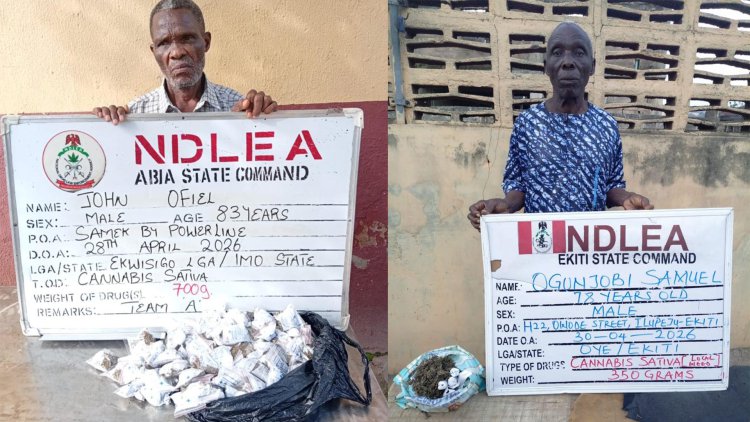 NDLEA
ABIA STATE COMMAND
NAME: JOHN OFIEL
SEX: MALE AGE 83 YEARS
P.O.A: SAMEK BY POWERLINE
D.O.A: 28TH APRIL 2026
LGA/STATE EKWISIGO LGA/ IMO STATE
T.O.D: CANNABIS SATIVA
WEIGHT OF DRUG(S) 700g
REMARKS: TEAM 'A'
NDLEA
EKITI STATE COMMAND
NAME: OGUNJOBI SAMUEL
AGE: 78 YEARS OLD
SEX: MALE
P.O.A: H22, OWODE STREET, ILUPEJU-EKITI
DATE O.A: 30-04-2026
LGA/STATE: OYE/EKITI
TYPE OF DRUGS: CANNABIS SATIVA [LOCAL
WEIGHT: 350 GRAMS